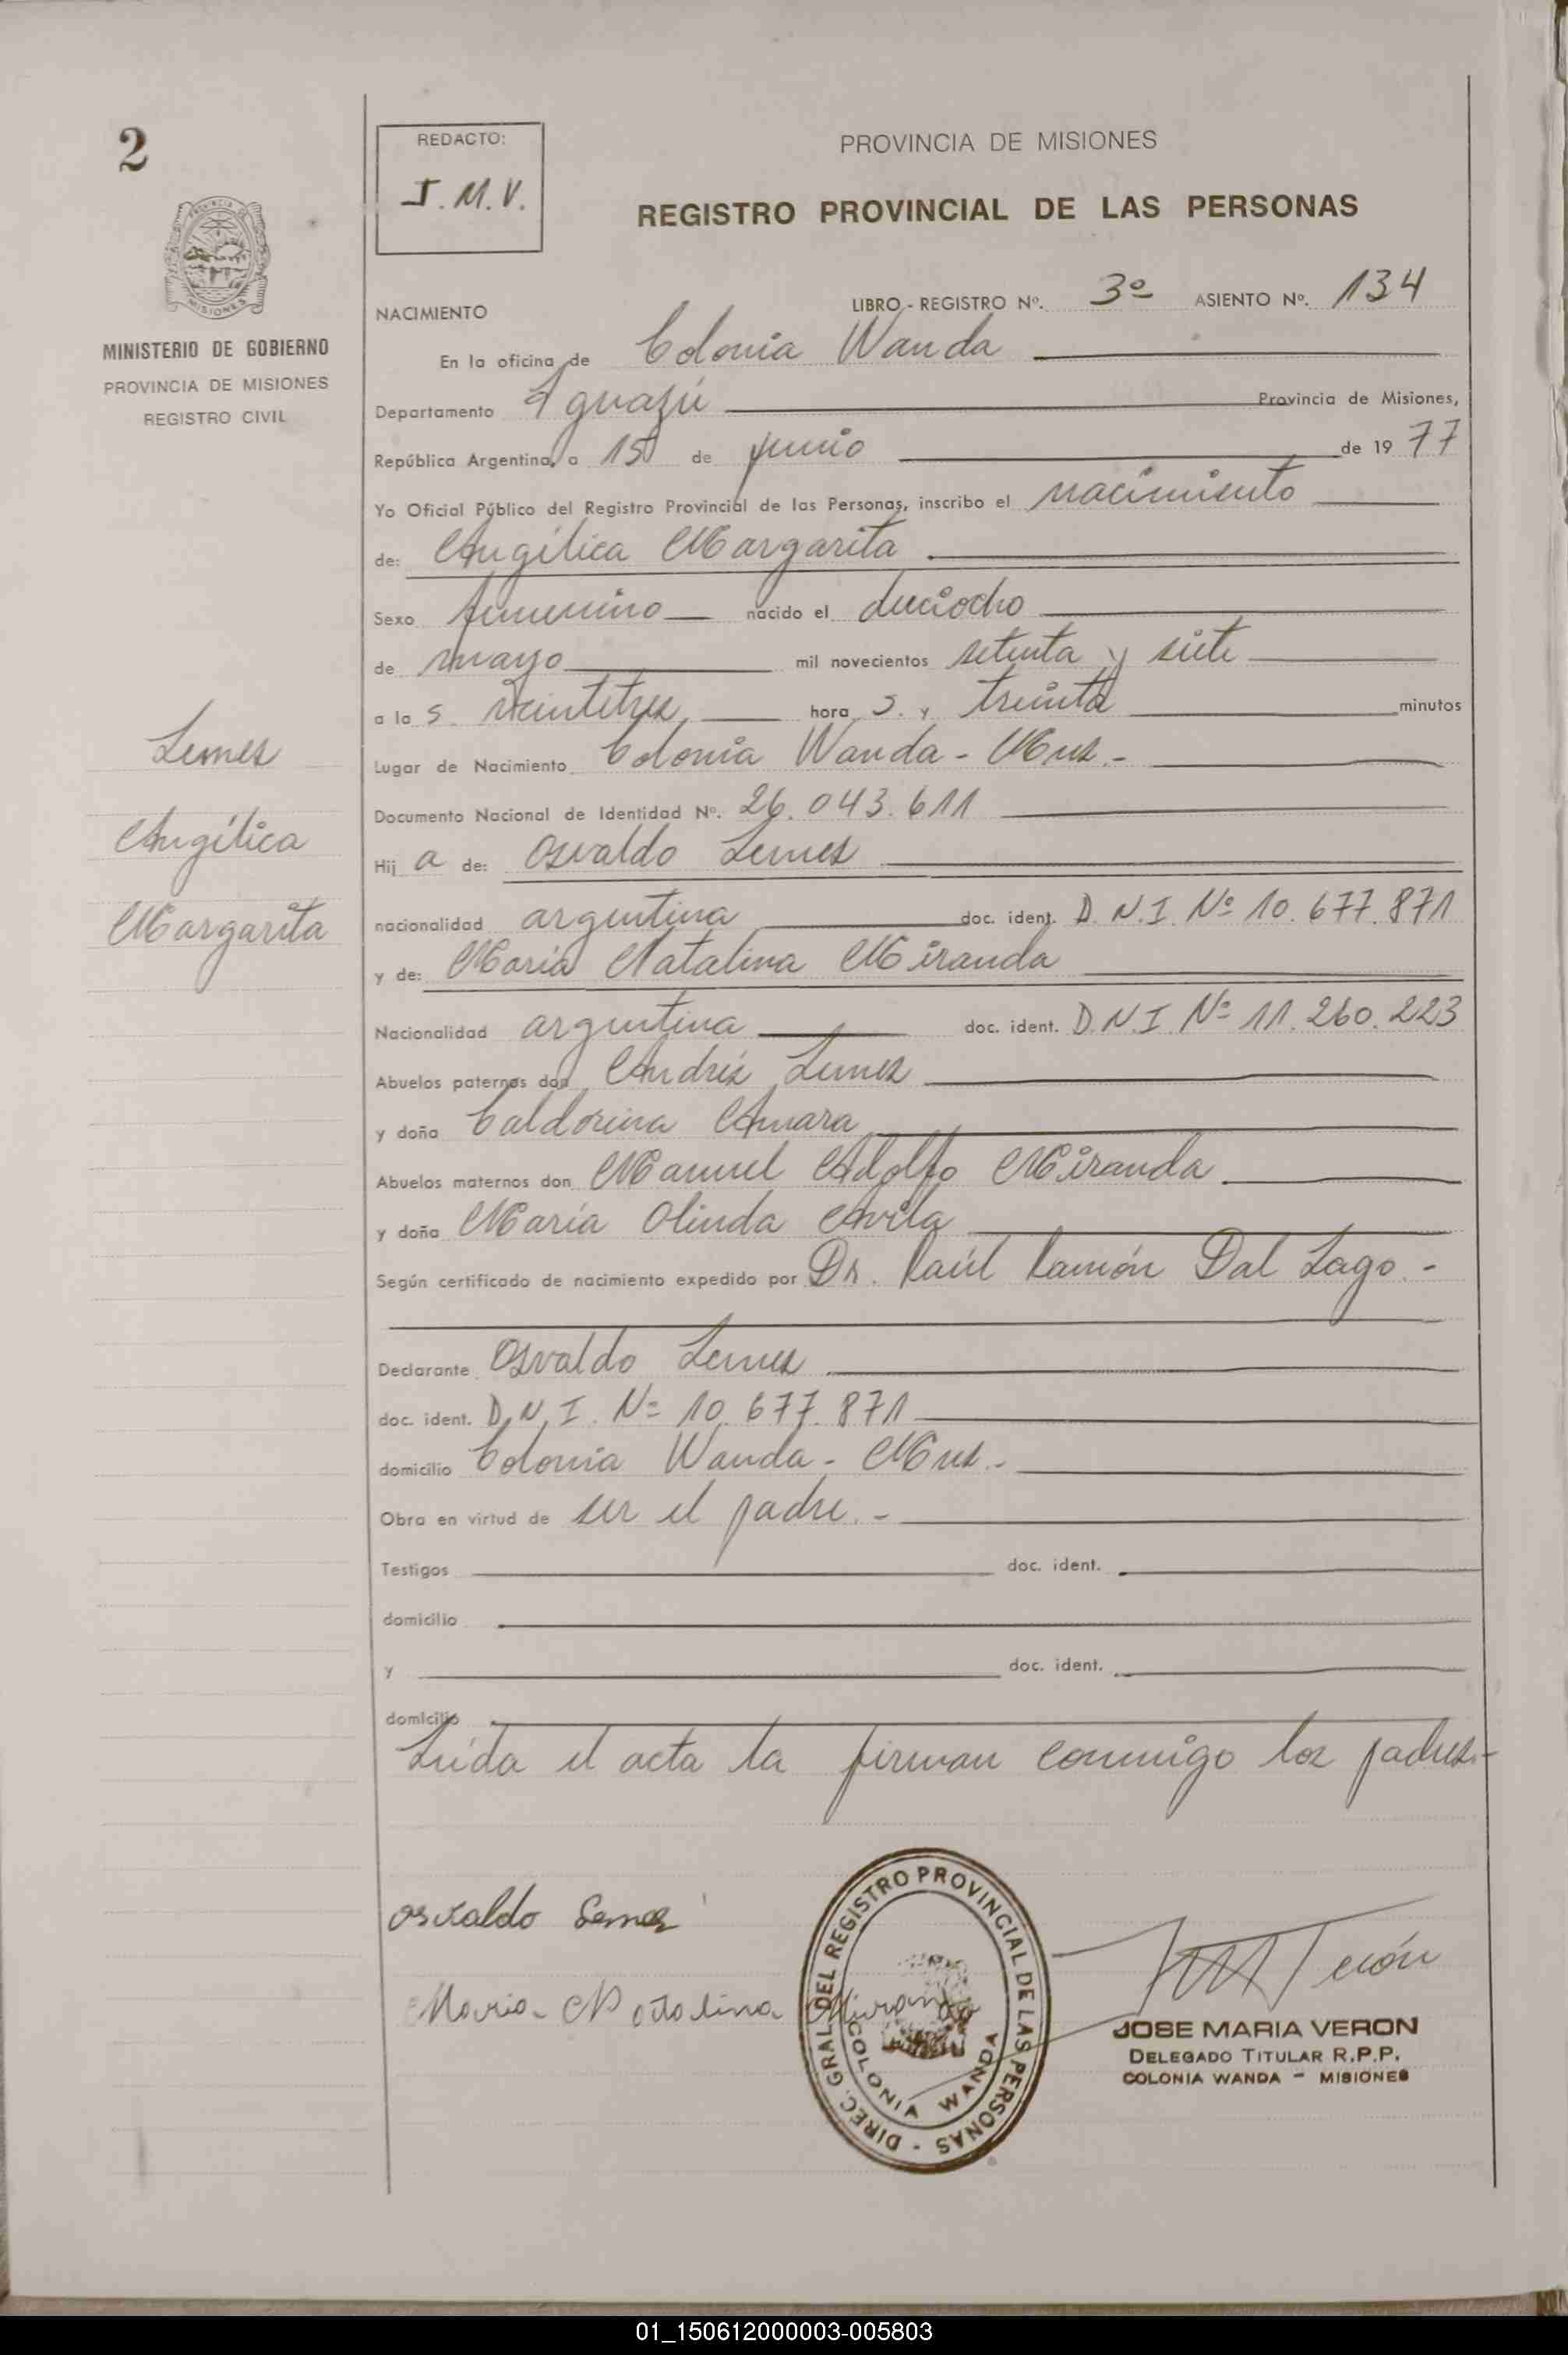 2
REDACTO:
J. M. V.
PROVINCIA DE MISIONES
REGISTRO PROVINCIAL DE LAS PERSONAS
MINISTERIO DE GOBIERNO
PROVINCIA DE MISIONES
REGISTRO CIVIL
NACIMIENTO LIBRO - REGISTRO Nº. 3º ASIENTO Nº. 134
En la oficina de Colonia Wanda
Departamento Iguazú Provincia de Misiones,
República Argentina, a 15 de junio de 19 77
Yo Oficial Público del Registro Provincial de las Personas, inscribo el nacimiento
de: Angélica Margarita
Sexo femenino nacido el dieciocho
de mayo mil novecientos setenta y siete
a la s veintitres hora s. y treinta minutos
Lugar de Nacimiento Colonia Wanda - Mnes.-
Documento Nacional de Identidad Nº. 26.043.611
Hij a de: Osvaldo Lemes
nacionalidad argentina doc. ident. D.N.I. Nº 10.677.871
y de: María Natalina Miranda
Nacionalidad argentina doc. ident. D.N.I. Nº 11.260.223
Abuelos paternos don Andrés Lemes
y doña Caldorina Amara
Abuelos maternos don Manuel Adolfo Miranda
y doña María Olinda Avila
Según certificado de nacimiento expedido por Dr. Raúl Ramón Dal Lago.-
Declarante Osvaldo Lemes
doc. ident. D.N.I. Nº 10.677.871
domicilio Colonia Wanda - Mnes.-
Obra en virtud de ser el padre.-
Testigos doc. ident.
domicilio
y doc. ident.
domicilio
Leída el acta la firman conmigo los padres.-
Lemes
Angélica
Margarita
Osvaldo Lemes
Maria Natalina Miranda
DIREC. GRAL. DEL REGISTRO PROVINCIAL DE LAS PERSONAS -
COLONIA WANDA
JOSE MARIA VERON
DELEGADO TITULAR R.P.P.
COLONIA WANDA - MISIONES
PROVINCIA DE MISIONES
01_150612000003-005803